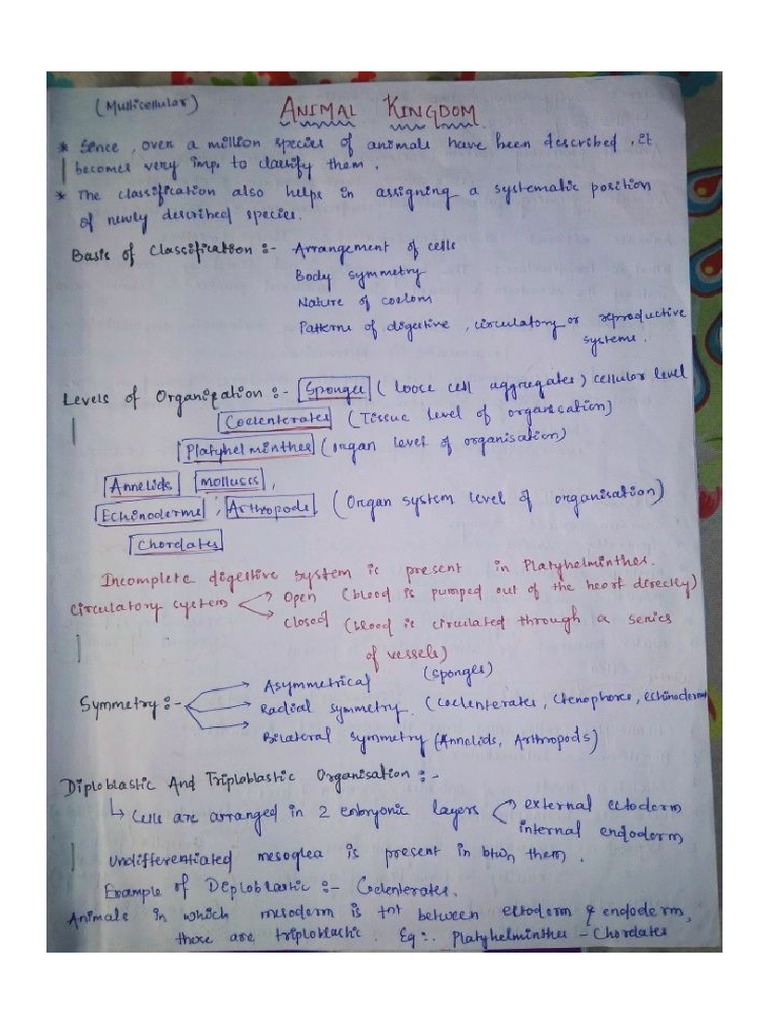 (Multicellular) ANIMAL KINGDOM
* Sence, over a million species of animals have been described, it
becomes very imp. to classify them.
* The classification also helps in assigning a systematic position
of newly described species.
Basis of Classification :- Arrangement of cells
Body symmetry
Nature of coelom
Patterns of digestive, circulatory or reproductive
systems.
Levels of Organization :- Sponges (loose cell aggregates) cellular level
Coelenterates (Tissue level of organisation)
Platyhelminthes (organ level of organisation)
Annelids molluscs,
Echinoderms, Arthropods (Organ system level of organisation)
Chordates
Incomplete digestive system is present in Platyhelminthes.
Circulatory system Open (blood is pumped out of the heart directly)
Closed (blood is circulated through a series
of vessels)
Symmetry :- Asymmetrical (sponges)
Radial symmetry. (Coelenterates, Ctenophores, echinoderms
Bilateral symmetry (Annelids, Arthropods)
Diploblastic And Triploblastic Organisation :-
↳ Cells are arranged in 2 embryonic layers external ectoderm
internal endoderm,
Undifferentiated mesoglea is present in btwn them.
Example of Deploblastic :- Coelenterates.
Animals in which mesoderm is tnt between ectoderm & endoderm,
those are triploblastic. Eg:. Platyhelminthes - Chordates